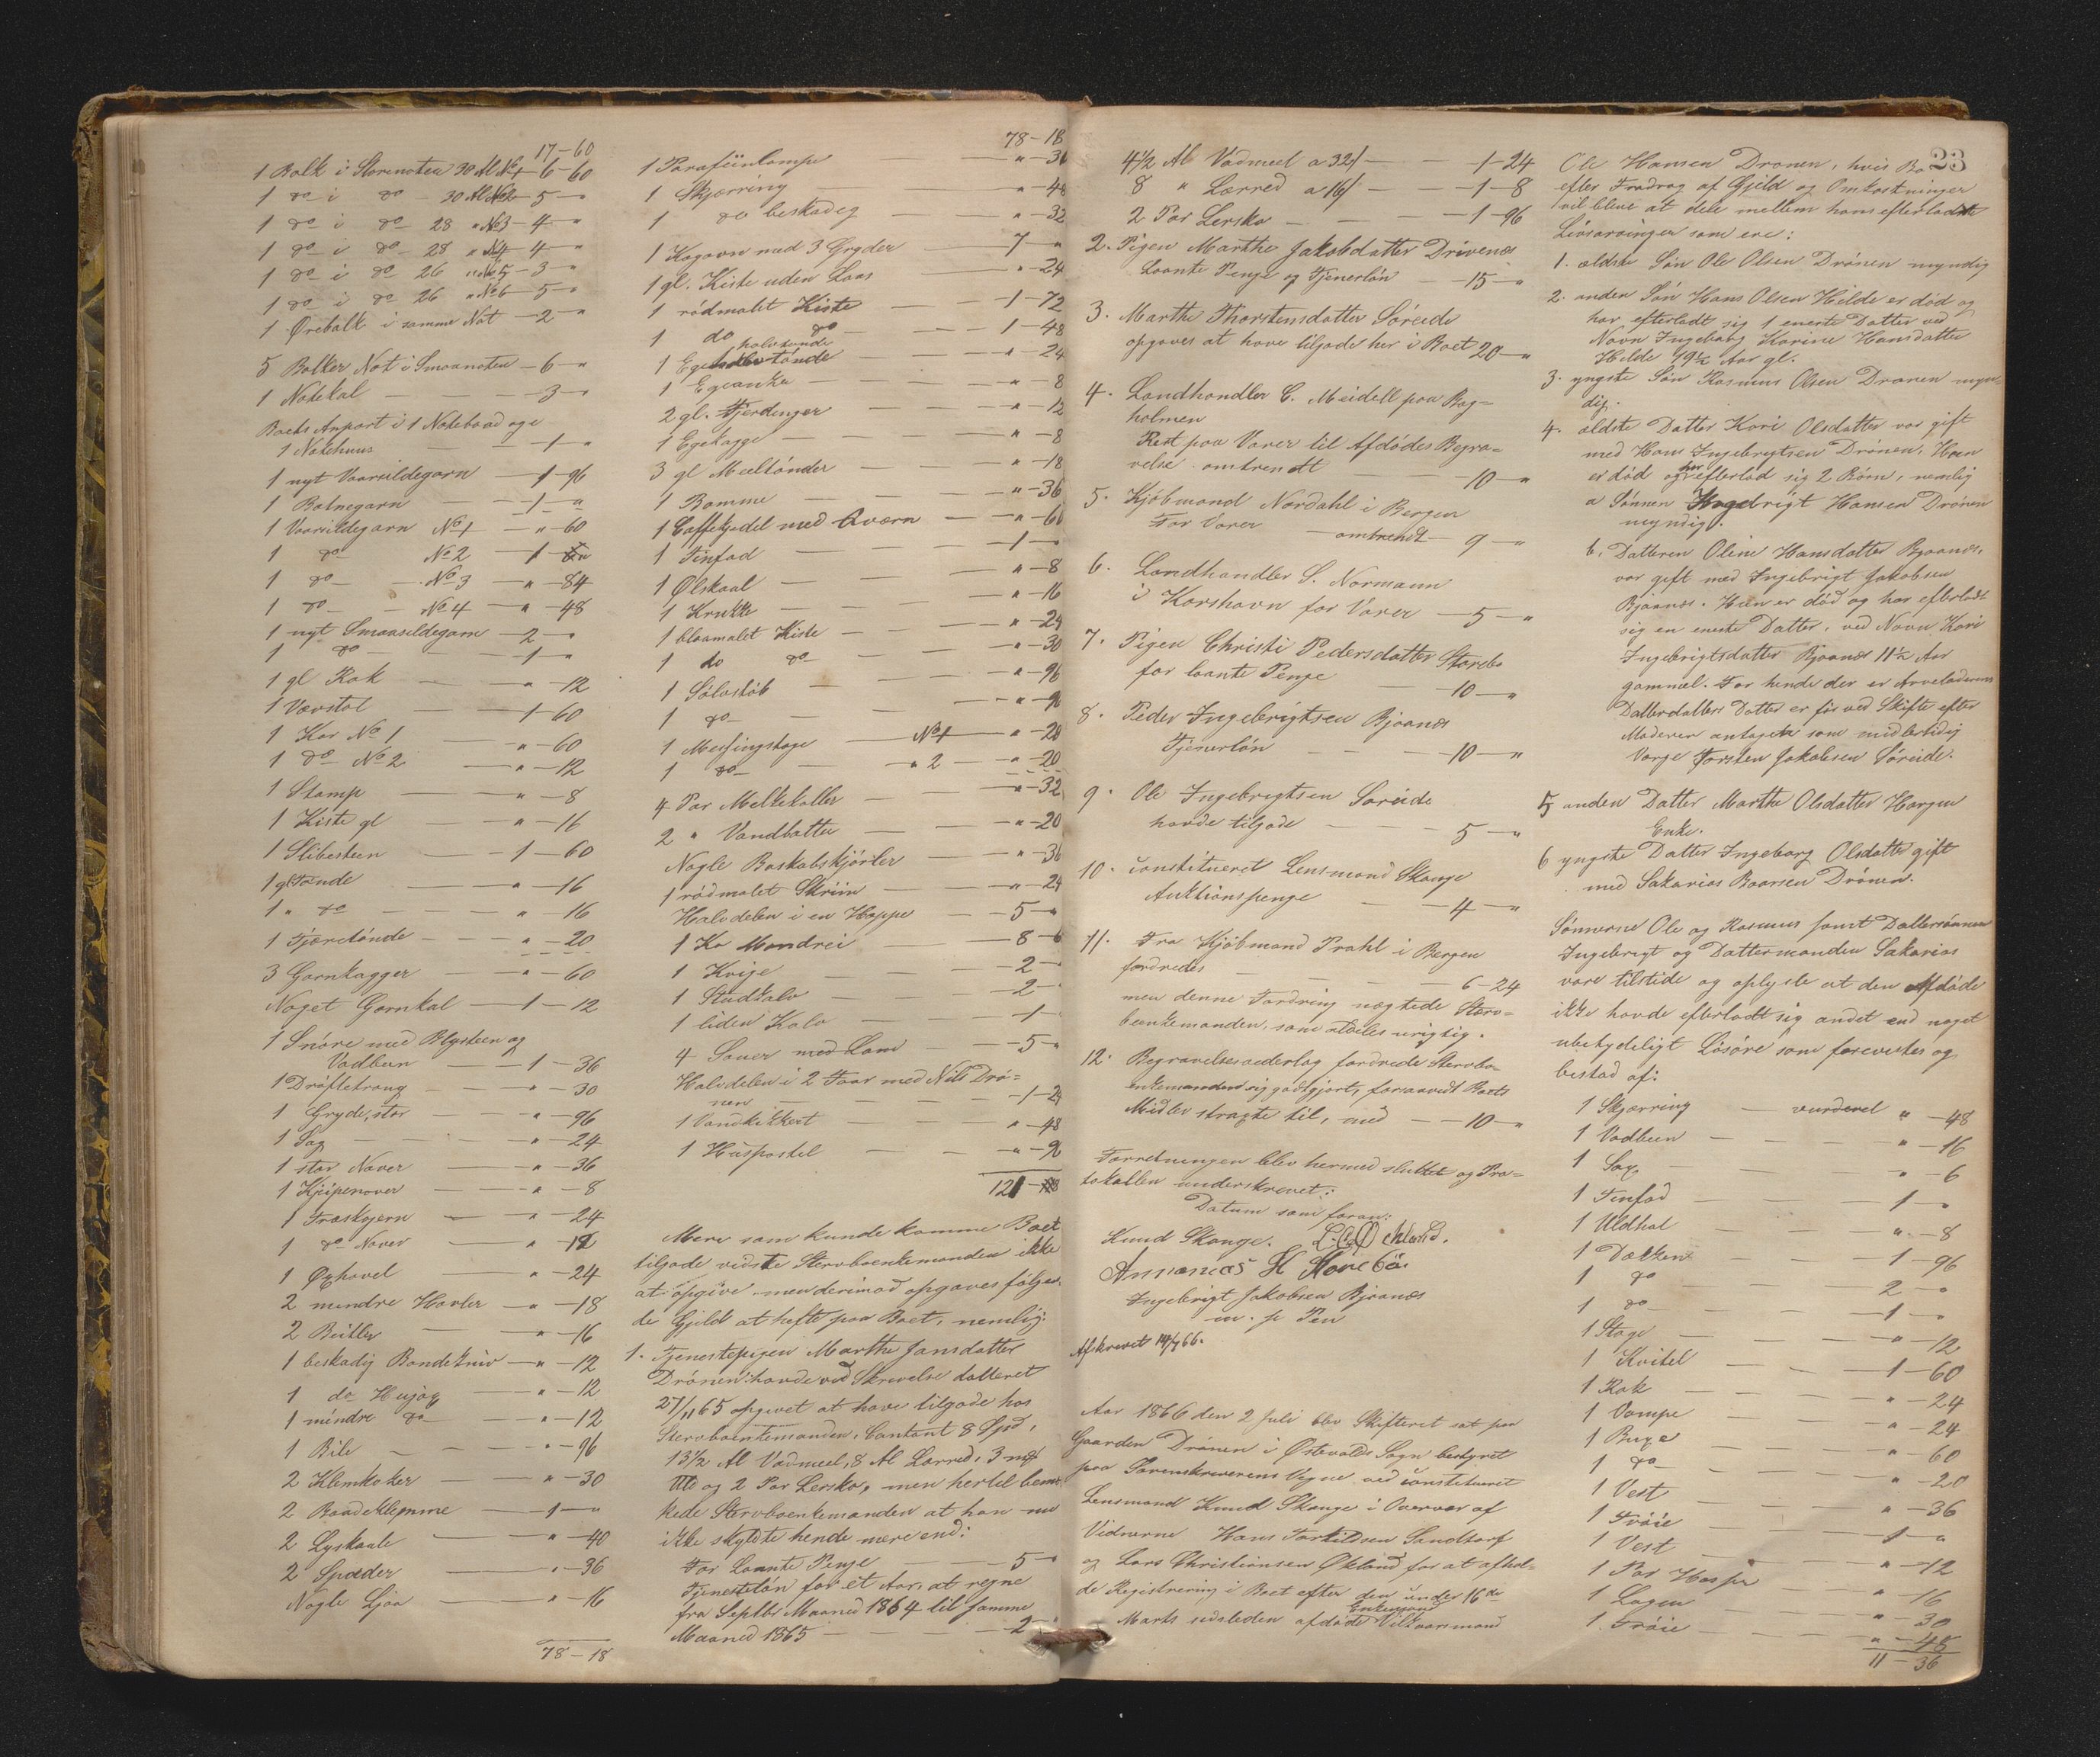 17-60
1 Bolk i Storenoten 30 Al No 1 - 6-60
1 do i do - 30 Al No 2 - 5 - "
1 do i do 28 " No 3 - 4 - "
1 do i do - 28 " No 4 - 4 - "
1 do i do 26 " No 5 - 3 - "
1 do i do 26 " No 6 - 5 - "
1 Ørebolk i samme Not - 2 - "
5 Bolker Not i Smaanoten - 6 - "
1 Notekal - 3 - "
Boets Anpart i 1 Notebaad og e
1 Notehuus - 1 - "
1 nyt Vaarsildegarn - 1 - 96
1 Botnegarn - 1 - "
1 Vaarsildegarn No 1 - " - 60
1 do No 2 - 1 - "
1 do - No 3 - " - 84
1 do - No 4 - " - 48
1 nyt Smaasildegarn - 2 - "
1 do - 1 - "
1 gl Rok - " - 12
1 Vævstol - 1 - 60
1 Kar No 1 - " - 60
1 do No 2 - " - 12
1 Stamp - " - 8
1 Kiste gl - " - 16
1 Slibesteen - 1 - 60
1 gl Tønde - " - 16
1 " do - " - 16
1 Tjæretønde - " - 20
3 Garnkagger - " - 60
Noget Garnkal - 1 - 12
1 Snøre med Blysteen og
Vadbeen - 1 - 36
1 Drøftetroug - " - 30
1 Gryde, stor - " - 96
1 Sag - " - 24
1 stor Naver - " - 36
1 Kjipenaver - " - 8
1 Træskjern - " - 24
1 do Naver - " - 12
1 Øxhøvel - " - 24
2 mindre Høvler - " - 18
2 Beitler - " - 16
1 beskadig Baandekniv - " - 12
1 do Hujøg - " - 12
1 mindre do - " - 12
1 Bile - " - 96
2 Klemkoker - " - 30
2 Baadeklemme - 1 - "
2 Lyskaale - " - 40
2 Spader - " - 36
Nogle Ljaa - " - 16
78 - 18
78 - 18
1 Parafiinlampe - " - 36
1 Skjærring - " - 48
1 do beskadeg - " - 32
1 Kogovn med 3 Gryder - 7 - "
1 gl. Kiste uden Laas - " - 24
1 rødmalet Kiste - 1 - 72
1 do do - 1 - 48
halvtønde
1 Ege - " - 24
1 Egeanker - " - 8
2 gl. Fjerdinger - " - 12
1 Egekagge - " - 8
3 gl Meeltønder - " - 18
1 Bomme - " - 36
1 Caffekjedel med Qværn - " - 60
1 Tinfad - 1 - "
1 Ølskaal - " - 8
1 Krukke - " - 16
1 blaamalet Kiste - " - 24
1 do do - " - 30
1 Sølvstøb - " - 96
1 do - " - 90
1 Messingstage - No 1 - " - 28
1 do - " 2 - " - 20
4 Par Melkekoller - " - 32
2 " Vandbøtter - " - 20
Nogle Boskabskjørler - " - 36
1 rødmalet Skriin - " - 24
Halvdelen i en Hoppe - 5 - "
1 Ko Mandrei - 8 - "
1 Kvige - 2 - "
1 Studkalv - 2 - "
1 liden Kalv - 1 - "
4 Souer med Lam - 5 - "
Halvdelen i 2 Faar med Nils Drø-
nen - 1 - 24
1 Vandkikkert - " - 48
1 Huspostil - " - 90
121 -
Mere som kunde komme Boet
tilgode vidste Stervboenkemanden ikke
at opgive, men derimod opgaves følgen-
de Gjeld at hefte paa Boet, nemlig:
1. Tjenestepigen Marthe Jansdatter
Drønen havde ved Skrivelse datteret
27/11 65 opgivet at have tilgode hos
Stervboenkemanden, Contant 8 Spd,
13 1/2 Al Vadmeel, 8 Al Lærred, 3 mk
Uld og 2 Par Lersko, men hertil bemer-
kede Stervboenkemanden at han nu
ikke skyldte hende mere end:
For Laante Penge - 5 - "
Tjenesteløn for et Aar, at regne
fra Septbr Maaned 1864 til samme
Maaned 1865 - 2 - "
4 1/2 Al Vadmeel a 32/ - 1 - 24
8 " Lærred a 16/ - 1 - 8
2 Par Lersko - 1 - 96
2. Pigen Marthe Jakobsdatter Drivenes
Laante Penge og Tjenerløn - 15 - "
3. Marthe Thorstensdatter Søreide
opgaves at have tilgode her i Boet 20 - "
4. Landhandler C. Meidell paa Bag-
holmen
Rest paa Varer til Afdødes Begra-
velse omtrendt - 10 - "
5. Kjøbmand Nordahl i Bergen
For Varer - omtrendt - 9 - "
6. Landhandler S. Normann
i Korshavn for Varer - 5 - "
7. Pigen Christi Pedersdatter Storebø
for laante Penge - 10 - "
8. Peder Ingebrigtsen Bjoanes
Tjenerløn - 10 - "
9. Ole Ingebrigtsen Søreide
havde tilgode - 5 - "
10. constitueret Lensmand Skauge
Auktionspenge - 4 - "
11. Fra Kjøbmand Prahl i Bergen
fordredes - 6 - 24
men denne Fordring nægtede Stervbo-
enkemanden, som aldeles urigtig.
12. Begravelsesvederlag fordrede Stervbo-
enkemanden sig godtgjort, forsaavidt Boets
Midler stragte til, med - 10 - "
Forretningen blev hermed sluttet og Pro-
tokollen underskrevet:
Datum som foran:
Knud Skauge.
Annanias H Storebø.
Ingebrigt Jakobsen Bjoanes
m. p. Pen
Afskrevet 14/7 66.
Aar 1866 den 2 Juli blev Skifteret sat paa
Gaarden Drønen i Østevolds Sogn bestyret
paa Sorenskriverens Vegne ved constitueret
Lensmand Knud Skauge i Overvær af
Vidnerne Hans Torkildsen Sandtorf
og Lars Christiansen Økland for at afhol-
de Registrering i Boet efter den under 16de
Enkemand
Marts sidstleden afdøde Vilkaarsmand
23
Ole Hansen Drønen, hvis Bo
efter Fradrag af Gjeld og Omkostninger
vil blive at dele mellem hans efterladte
Livsarvinger som ere:
1. ældste Søn Ole Olsen Drønen myndig
2. anden Søn Hans Olsen Hilde er død og
har efterladt sig 1 eneste Datter ved
Navn Ingeborg Karine Hansdatter
Hilde 19 1/2 Aar gl.
3. yngste Søn Rasmus Olsen Drønen myn-
dig.
4. ældste Datter Kari Olsdatter var gift
med Hans Ingebrigtsen Drønen, Hun
er død og har efterlad sig 2 Børn, nemlig
a Sønnen Ingebrigt Hansen Drønen
myndig.
b. Datteren Oline Hansdatter Bjoanes,
var gift med Ingebrigt Jakobsen
Bjoanes. Hun er død og har efterladt
sig en eneste Datter, ved Navn Kari
Ingebrigtsdatter Bjoanes 11 1/2 Aar
gammel. For hende der er Arveladerens
Datterdatters Datter er før ved Skifte efter
Moderen antaget som midlertidig
Verge Torsten Jakobsen Søreide.
5 anden Datter Marthe Olsdatter Haugen
Enke.
6 yngste Datter Ingeborg Olsdatter gift
med Sakarias Baarsen Drønen.
Sønnerne Ole og Rasmus samt Dattersønnen
Ingebrigt og Dattermanden Sakarias
vare tilstede og oplyste at den Afdøde
ikke havde efterladt sig andet end noget
ubetydeligt Løsøre som forevistes og
bestod af:
1 Skjærring - vurderet " - 48
1 Vadbeen - " - 16
1 Sax - " - 6
1 Tinfad - 1 - "
1 Uldhal - " - 8
1 Dækken - 1 - 96
1 do - 2 - "
1 do - 1 - "
1 Stage - " - 12
1 Kvitel - 1 - 60
1 Rok - " - 24
1 Vampe - " - 24
1 Buxe - " - 60
1 do - " - 20
1 Vest - " - 36
1 Trøie - 1 - "
1 Vest - " - 12
1 Par Hoser - " - 16
1 Lagen - " - 30
1 Trøie - " - 48
11 - 36